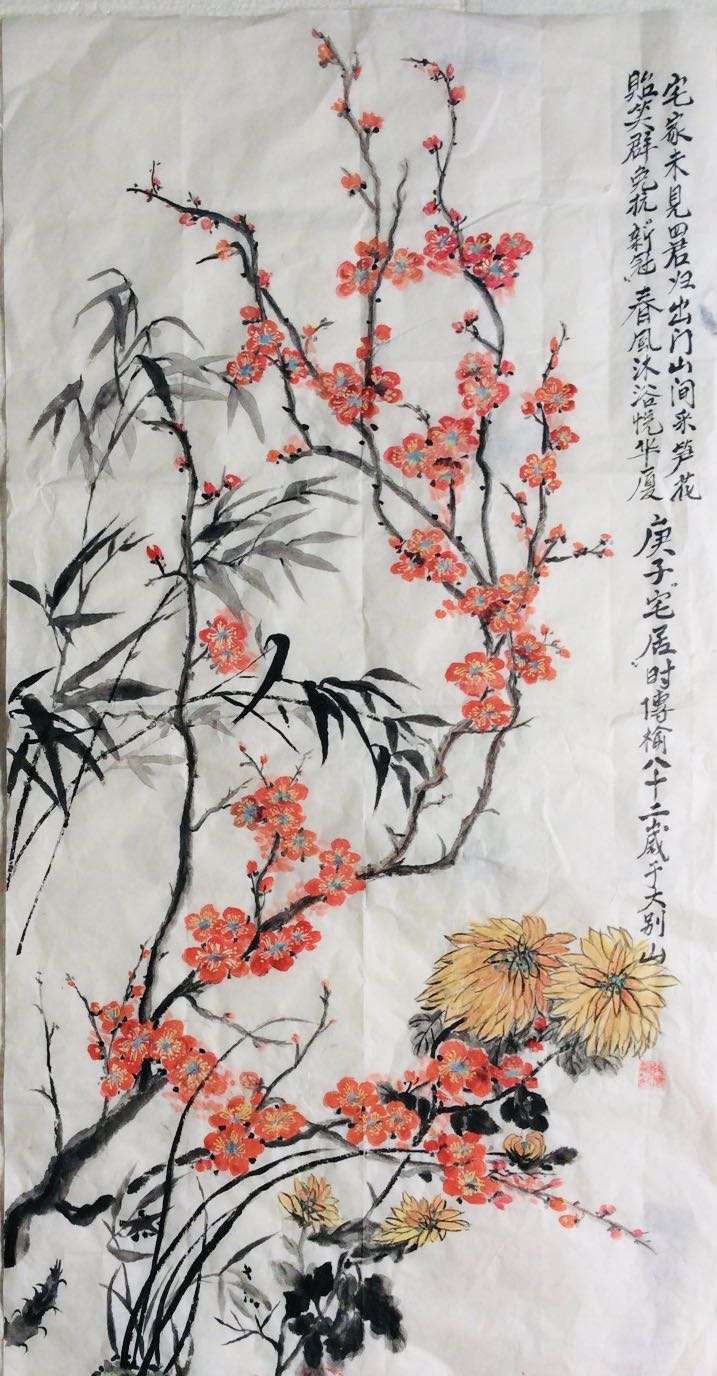 宅家未見四君归出门山间采笋花
贻笑群兔抗"新冠"春风沐浴悦华厦
庚子"宅居"时傳榆八十二歲于大别山